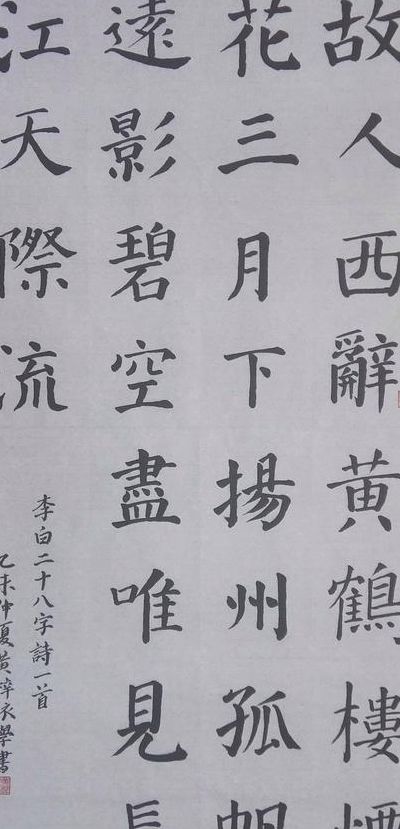 故人西辭黃鶴樓煙
花三月下揚州孤帆
遠影碧空盡唯見長
江天際流
李白二十八字詩一首
乙未仲夏黃

學書